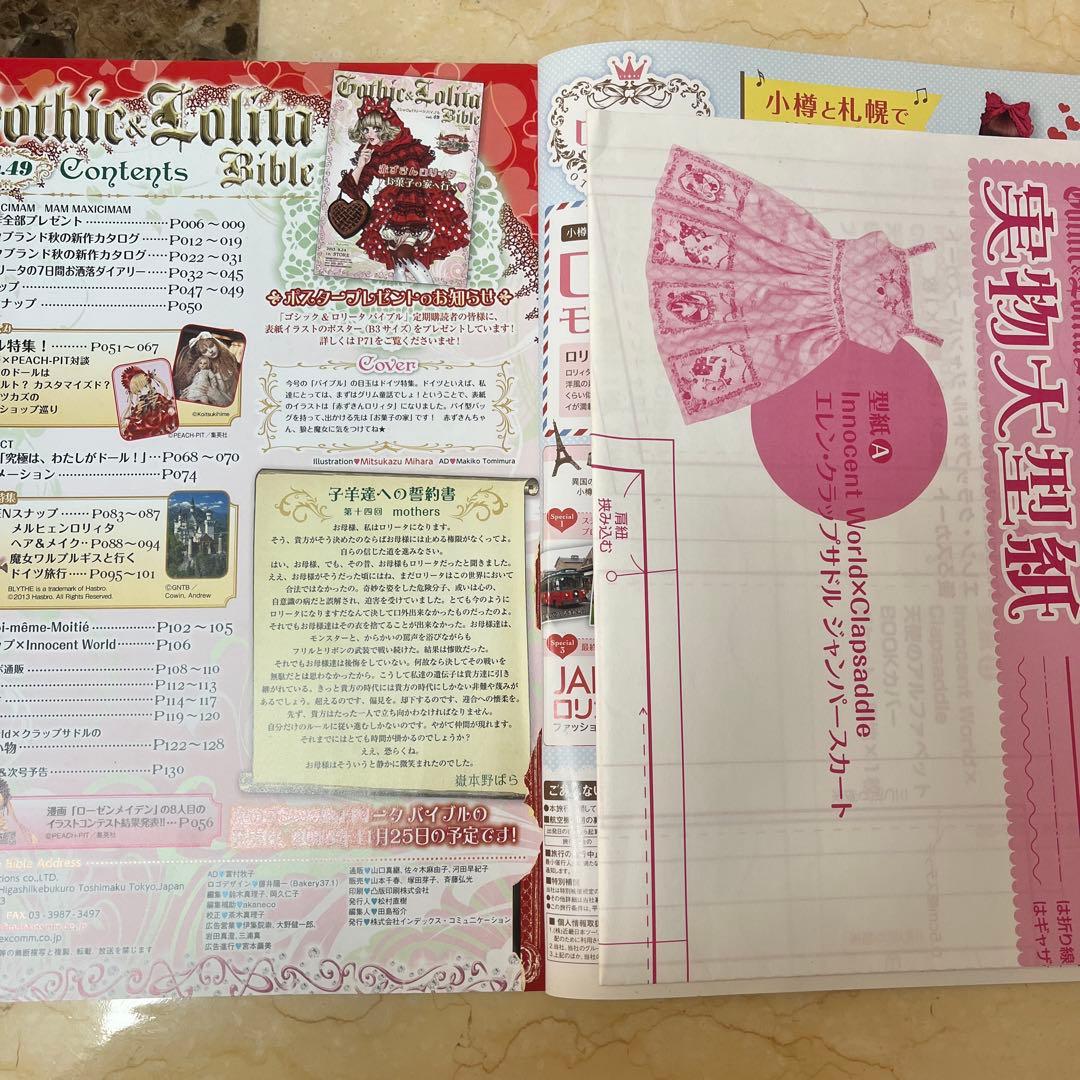 Gothic & Lolita
Bible
49
Contents
MAM MAXICIMAM
全部プレゼント P006〜009
ブランド秋の新作カタログ P012〜019
ブランド秋の新作カタログ P022〜031
リータの7日間お洒落ダイアリー P032〜045
ップ P047〜049
ナップ P050
ル特集! P051〜067
×PEACH-PIT対談
のドールは
ルト? カスタマイズド?
ツカズの
ショップ巡り
©Koitsukihime
©PEACH-PIT/集英社
CT
「究極は、わたしがドール!」 P068〜070
メーション P074
特集
ENスナップ P083〜087
メルヒェンロリィタ
ヘア&メイク P088〜094
魔女ワルプルギスと行く
ドイツ旅行 P095〜101
BLYTHE is a trademark of Hasbro.
©2013 Hasbro. All Rights Reserved.
©GNTB /
Cowin, Andrew
oi-même-Moitié P102〜105
プ×Innocent World P106
ボ通販 P108〜110
P112〜113
P114〜117
P119〜120
ld×クラップサドルの
い物 P122〜128
&次号予告 P130
漫画「ローゼンメイデン」の8人目の
イラストコンテスト結果発表!! P056
©PEACH-PIT/集英社
Gothic & Lolita
Bible
赤ずきん
お菓子の家へ行く
ポスタープレゼントのお知らせ
「ゴシック&ロリータバイブル」定期購読者の皆様に、
表紙イラストのポスター(B3サイズ)をプレゼントしています!
詳しくはP71をご覧くださいませ!
Cover
今号の「バイブル」の目玉はドイツ特集。ドイツといえば、私
達にとっては、まずはグリム童話でしょ!ということで、表紙
のイラストは「赤ずきんロリィタ」になりました。パイ型バッ
グを持って、出かける先は「お菓子の家」です! 赤ずきんちゃ
ん、狼と魔女に気をつけてね★
Illustration♥Mitsukazu Mihara AD♥Makiko Tomimura
子羊達への誓約書
第十四回 mothers
お母様、私はロリータになります。
そう、貴方がそう決めたのならばお母様には止める権限がなくってよ。
自らの信じた道を進みなさい。
はい、お母様、でも、その昔、お母様もロリータだったと聞きました。
ええ、お母様がそうだった頃にはね、まだロリータはこの世界において
合法ではなかったの。奇妙な姿をした危険分子、或いは心の、
自意識の病だと誤解され、迫害を受けていました。とても今のように
ロリータになりますだなんて決して口外出来なかったものだったのよ。
それでもお母様達はその衣を捨てることが出来なかった。お母様達は、
モンスターと、からかいの罵声を浴びながらも
フリルとリボンの武装で戦い続けた。結果は惨敗だった。
それでもお母様達は後悔をしていない。何故なら決してその戦いを
無駄だとは思わなかったから。こうして私達の遺伝子は貴方達に引き
継がれている。きっと貴方の時代には貴方の時代にしかない非難や蔑みが
あるでしょう。超えるのです、偏見を。却下するのです、迎合への懐柔を。
先ず、貴方はたった一人で立ち向かわなければなりません。
自分だけのルールに従い進むしかないのです。やがて仲間が現れます。
それまでにはとても時間が掛かるのでしょうか?
ええ、恐らくね。
お母様はそういうと静かに微笑まれたのでした。
嶽本野ばら
リータ バイブルの
11月25日の予定です!
Bible Address
tions co.,LTD.
Higashiikebukuro Toshimaku Tokyo,Japan
FAX 03-3987-3497
AD♥富村牧子
ロゴデザイン♥藤井陽一(Bakery37.1)
編集♥鈴木真理子、岡久仁子
編集補助♥akaneco
校正♥茶木真理子
広告営業♥伊集院崇、大野健一郎、
岩田真澄、三浦真
広告進行♥宮本麗美
通販♥山口真継、佐々木麻由子、河田早紀子
販売♥山本千春、塚田芽子、斉藤弘光
印刷♥凸版印刷株式会社
発行人♥松村直樹
編集人♥田島裕介
発行♥株式会社インデックス・コミュニケーション
等の無断複写と複製、転載、放送を禁じます
小樽と札幌で
小樽
ロリ
洋風の
異国の
小樽
Special 1
Special 3
最終
JAI
ロリ
ファッショ
実物大型紙
型紙A
Innocent World×Clapsaddle
エレン・クラップサドル ジャンパースカート
肩紐
挟み込む
は折り線
はギャザ